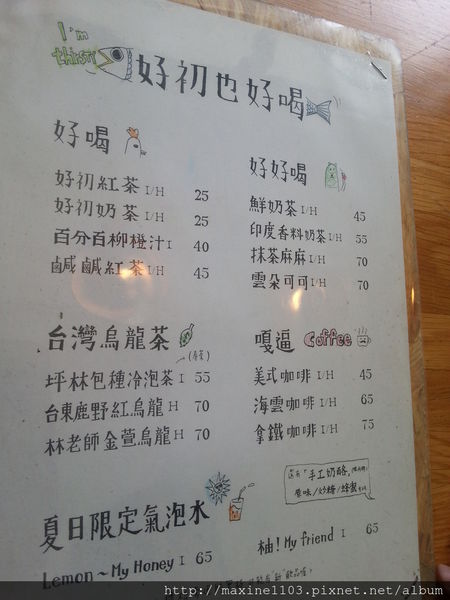 I'm thirsty
好初也好喝
好喝
好初紅茶 I/H 25
好初奶茶 I/H 25
百分百柳橙汁 I 40
鹹鹹紅茶 I/H 45
好好喝
鮮奶茶 I/H 45
印度香料奶茶 I/H 55
抹茶麻麻 I/H 70
雲朵可可 I/H 70
台灣烏龍茶
坪林包種冷泡茶 I 55
台東鹿野紅烏龍 H 70
林老師金萱烏龍 H 70
嘎逼 Coffee
美式咖啡 I/H 45
海雲咖啡 I/H 65
拿鐵咖啡 I/H 75
還有「手工奶酪」
原味/炒糖/蜂蜜
夏日限定氣泡水
Lemon~My Honey I 65
柚! My friend I 65
http://maxine1103.pixnet.net/album